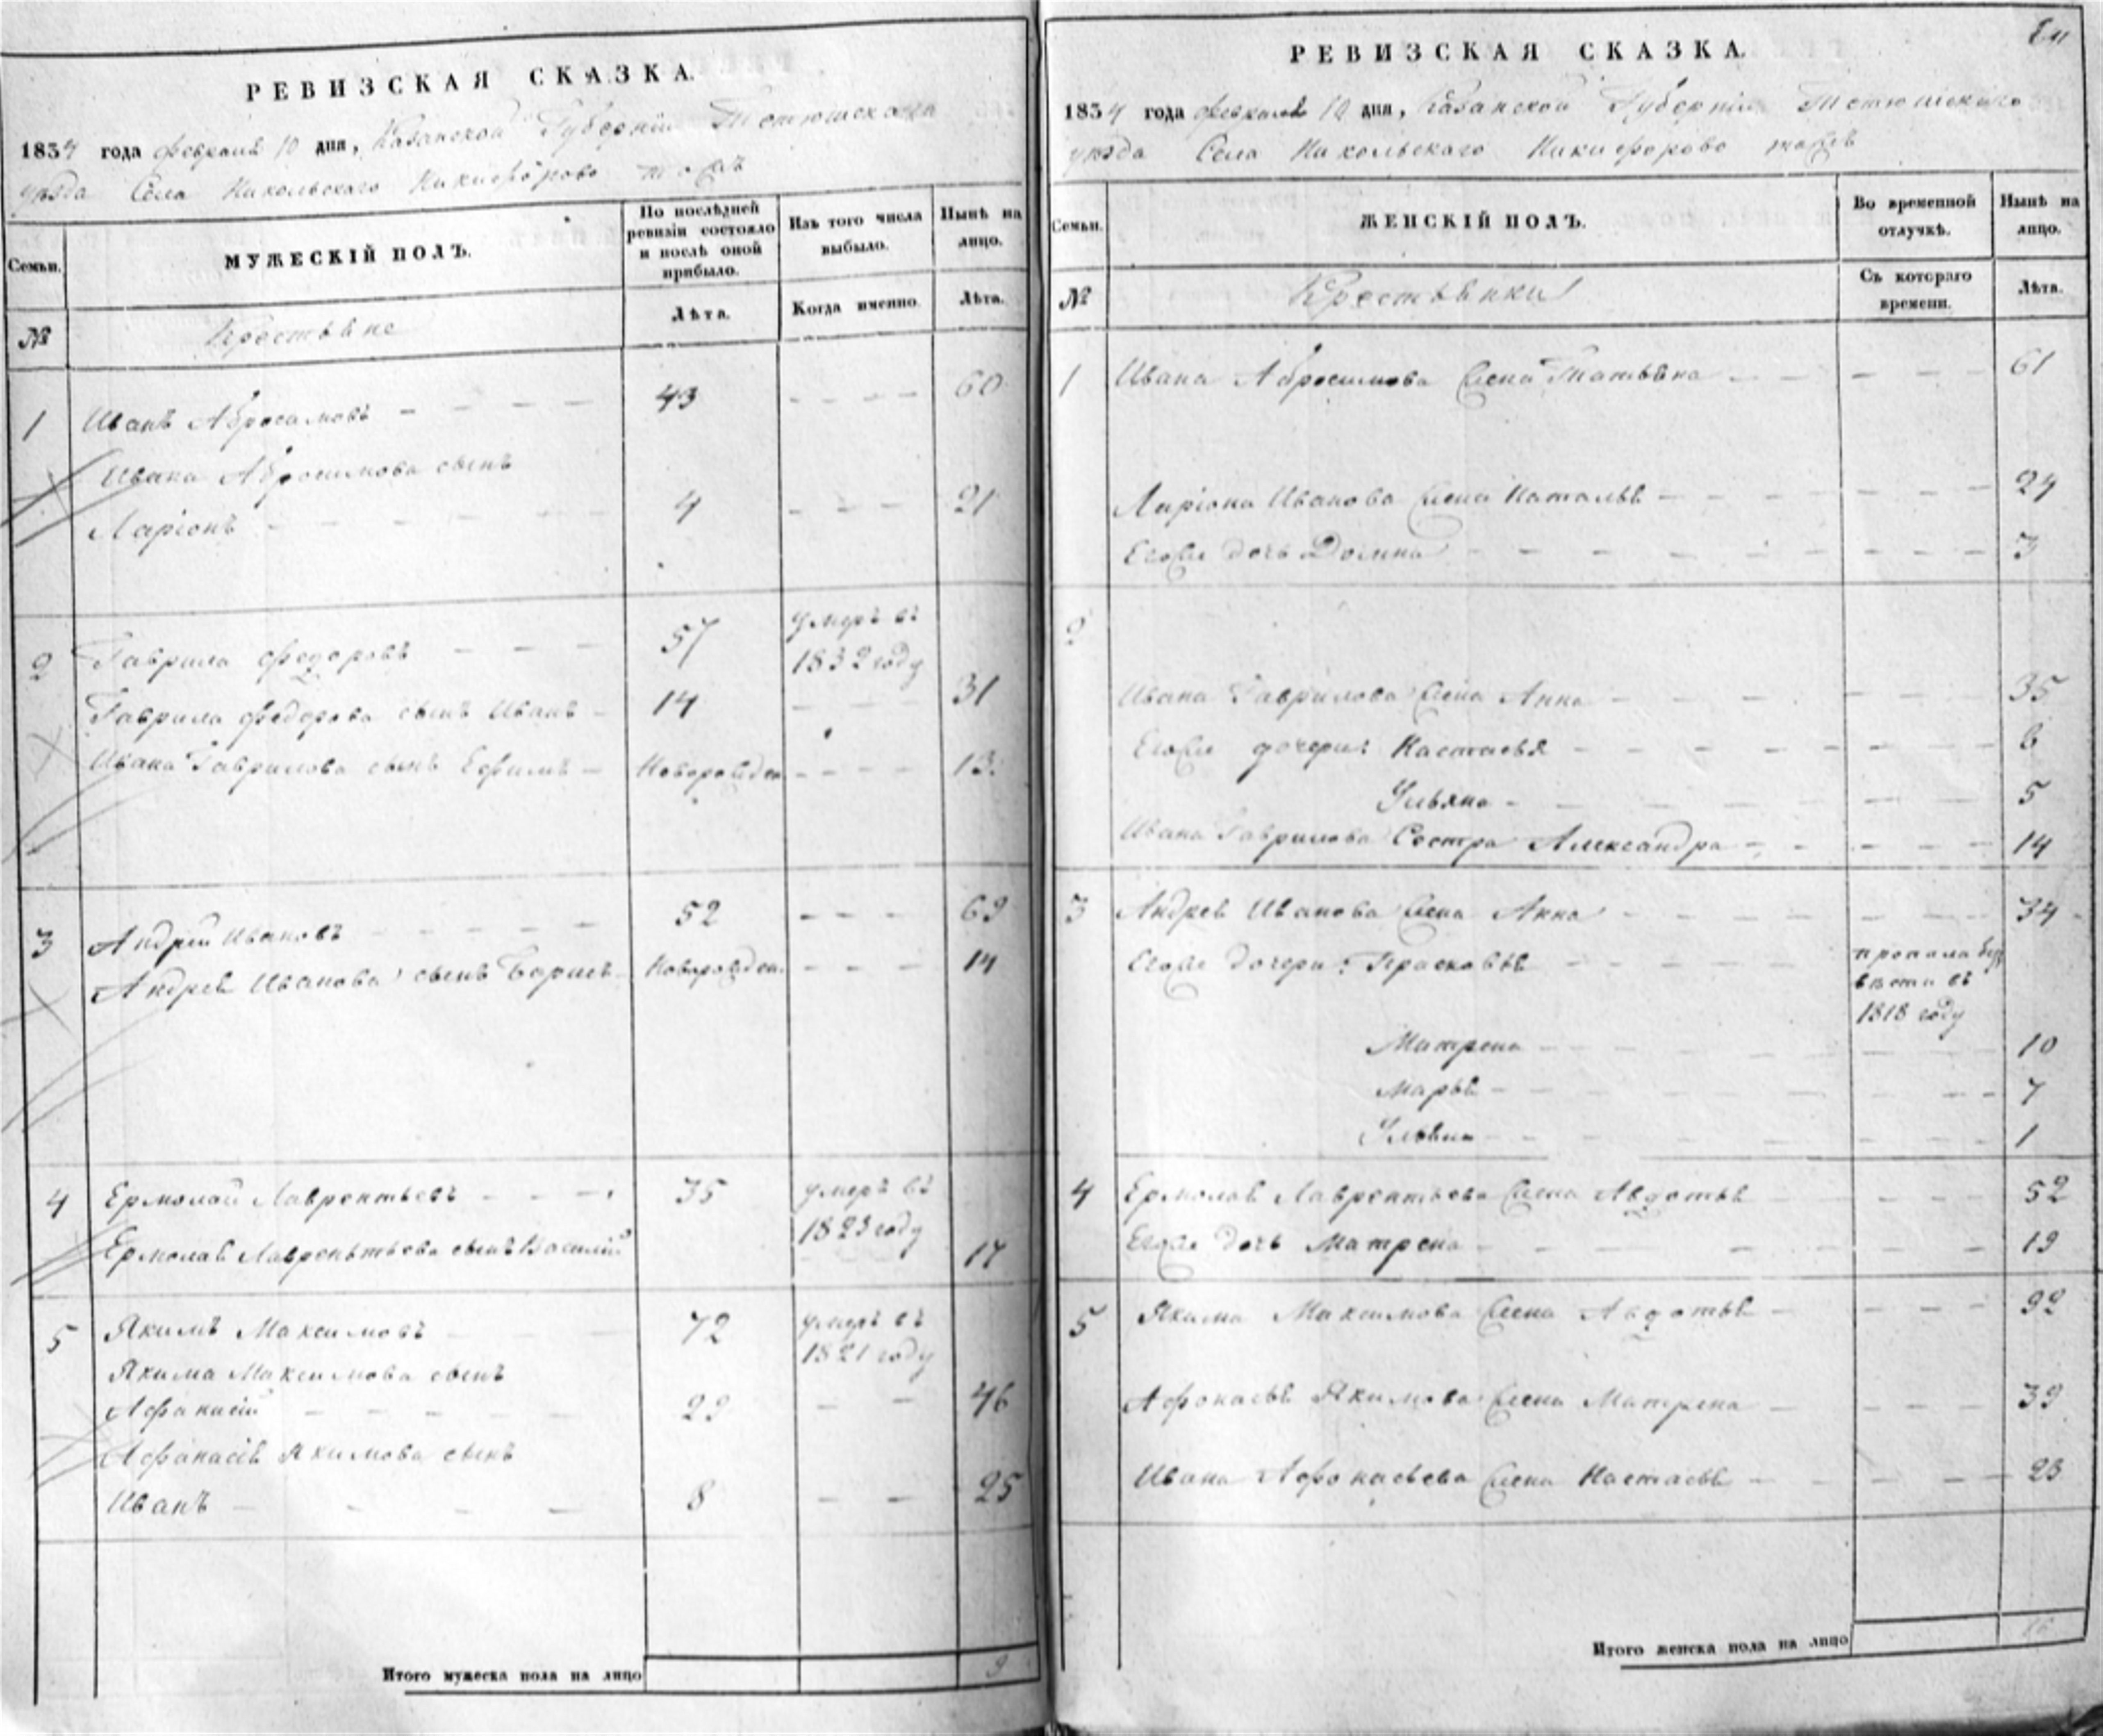 РЕВИЗСКАЯ СКАЗКА.
1834 года февраля 10 дня, Казанской Губерніи Тетюшскаго
уѣзда Села Никольскаго Никифорово тожъ
Семьи.
МУЖЕСКІЙ ПОЛЪ.
По послѣдней
ревизіи состояло
и послѣ оной
прибыло.
Изъ того числа
выбыло.
Нынѣ на
лицо.
№
Крестьяне
Лѣта.
Когда именно.
Лѣта.
1 Иванъ Абросимовъ 43 60
Ивана Абросимова сынъ
Ларіонъ 4 21
2 Гаврила Федоровъ 57 умеръ въ
1832 году
Гаврила Федорова сынъ Иванъ 14 31
Ивана Гаврилова сынъ Ефимъ Новорожден 13
3 Андрей Ивановъ 52 69
Андрея Иванова сынъ Борисъ Новорожден. 14
4 Ермолай Лаврентьевъ 35 умеръ въ
1823 году
Ермолая Лаврентьева сынъ Василий 17
5 Якимъ Максимовъ 72 умеръ въ
1821 году
Якима Максимова сынъ
Афанасій 29 46
Афанасія Якимова сынъ
Иванъ 8 25
Итого мужеска пола на лицо 9
РЕВИЗСКАЯ СКАЗКА.
1834 года февраля 10 дня, Казанской Губерніи Тетюшскаго
уѣзда Села Никольскаго Никифорово тожъ
Семьи.
ЖЕНСКІЙ ПОЛЪ.
Во временной
отлучкѣ.
Нынѣ на
лицо.
№
Крестьянки
Съ котораго
времени.
Лѣта.
1 Ивана Абросимова жена Татьяна 61
Ларіона Иванова жена Наталья 24
Егоже дочь Домна 3
2
Ивана Гаврилова жена Анна 35
Егоже дочери: Настасья 6
Ульяна 5
Ивана Гаврилова Сестра Александра 14
3 Андрея Иванова жена Анна 34
Егоже дочери: Прасковья пропала без
вѣсти въ
1818 году
Матрена 10
Марья 7
Ульяна 1
4 Ермолая Лаврентьева жена Авдотья 52
Егоже дочь Матрена 19
5 Якима Максимова жена Авдотья 92
Афонасья Якимова жена Матрена 39
Ивана Афонасьева жена Настасья 23
Итого женска пола на лицо 16